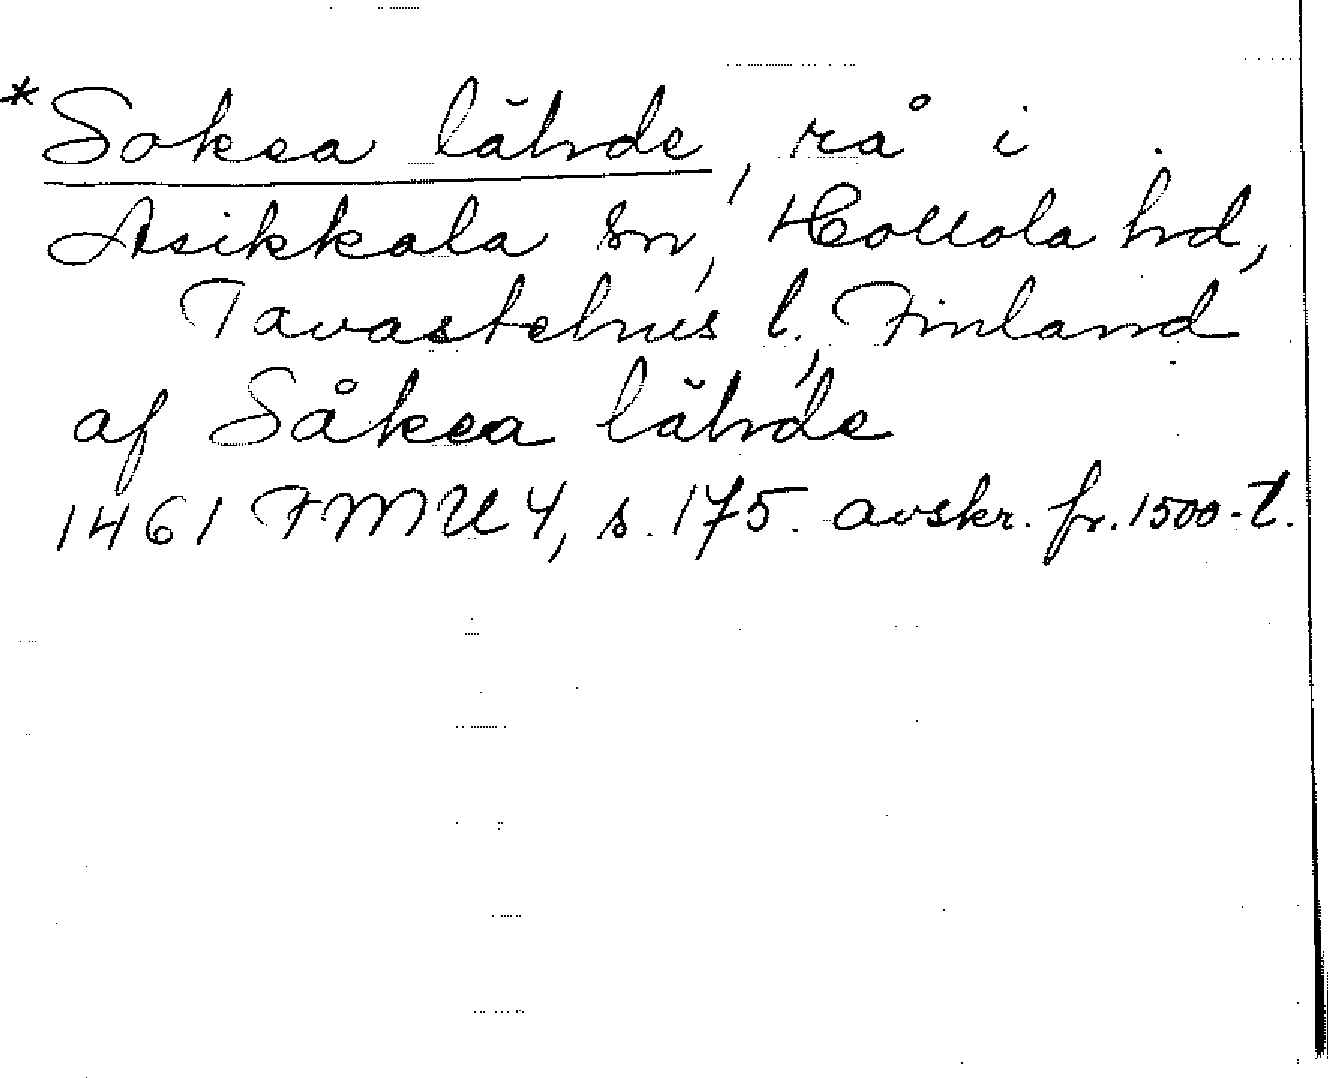 *Sokea lähde, rå i
Asikkala sn, Hollola hd,
Tavastehus l., Finland
af Såkea lähde
1461 FMU 4, s. 175. avskr. fr. 1500-t.